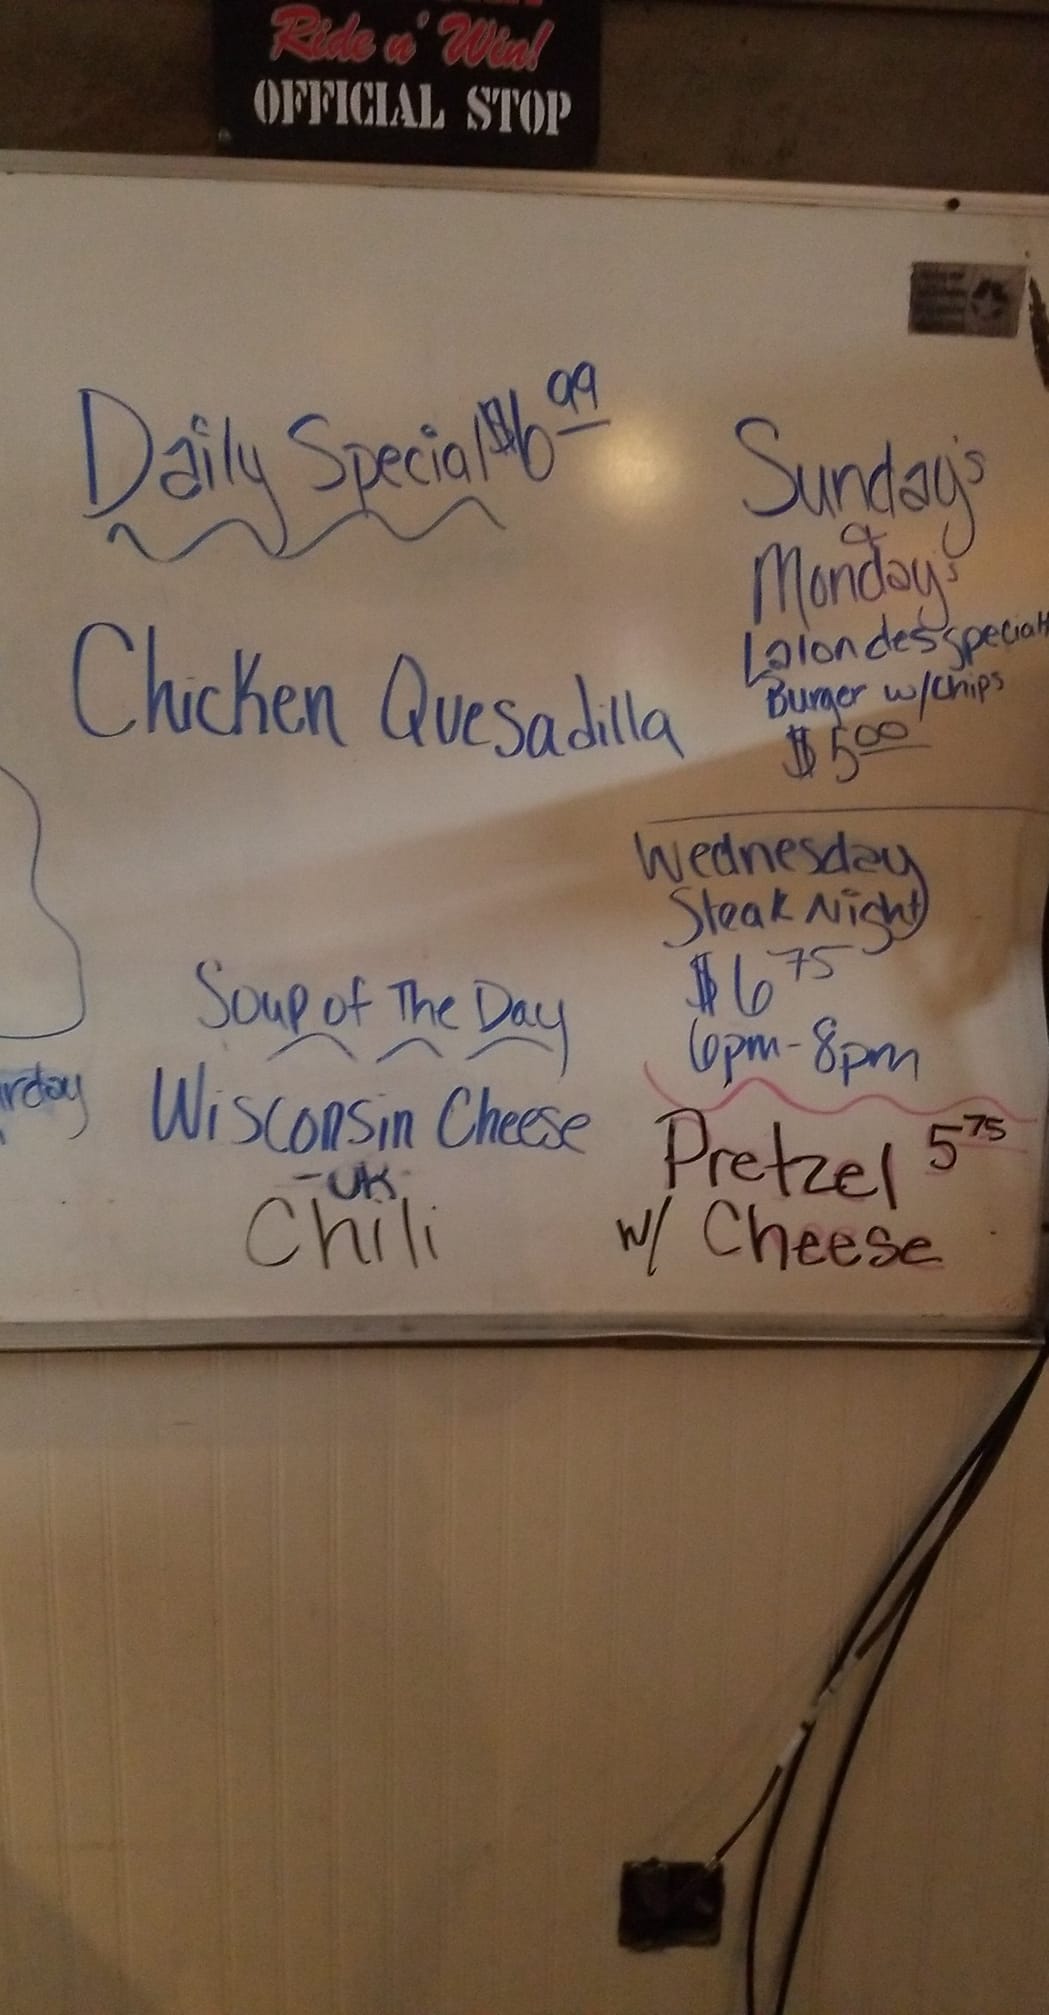 Ride n' Win!
OFFICIAL STOP
Daily Special $6.99
Chicken Quesadilla
Soup of The Day
Wisconsin Cheese
Chili
Sunday's
&
Monday's
Lalondes special
Burger w/chips
$5.00
Wednesday
Steak Night
$6.75
6pm-8pm
Pretzel 5.75
w/ Cheese